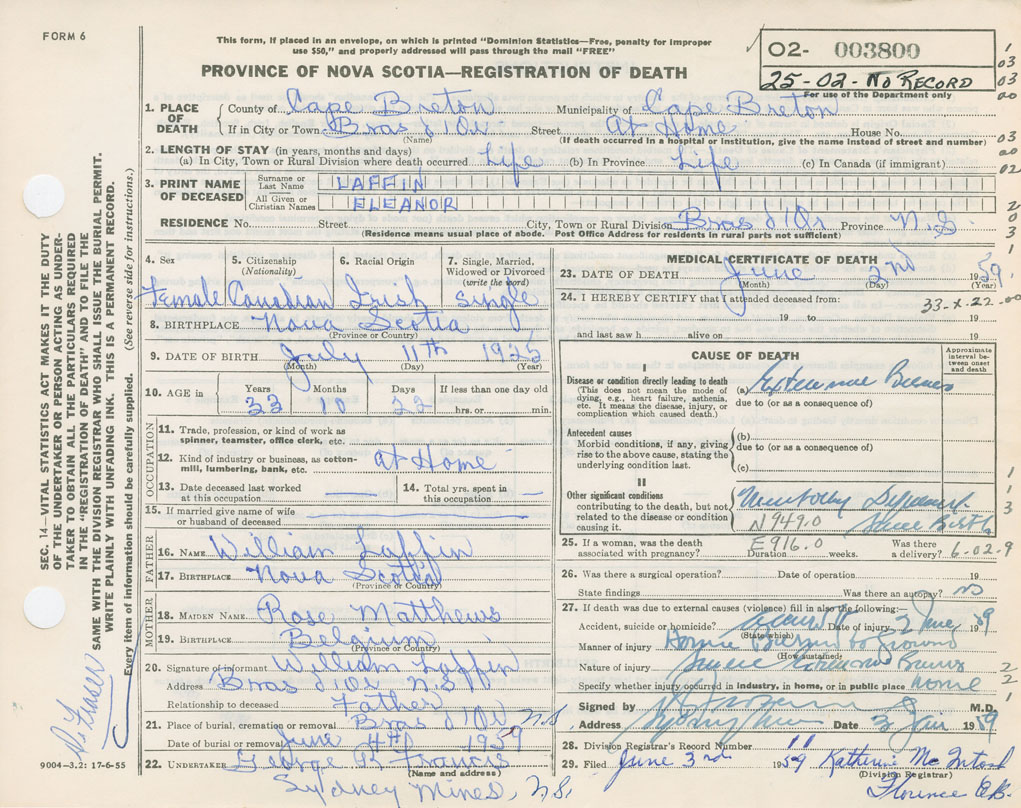 FORM 6
This form, if placed in an envelope, on which is printed "Dominion Statistics—Free, penalty for improper
use $50," and properly addressed will pass through the mail "FREE"
PROVINCE OF NOVA SCOTIA—REGISTRATION OF DEATH
02- 003800
25-02-No RECORD
For use of the Department only
1. PLACE OF DEATH County of Cape Breton Municipality of Cape Breton
If in City or Town Bras d'Or Street At Home House No.
(Name) (If death occurred in a hospital or institution, give the name instead of street and number)
2. LENGTH OF STAY (in years, months and days)
(a) In City, Town or Rural Division where death occurred Life (b) In Province Life (c) In Canada (if immigrant)
3. PRINT NAME OF DECEASED Surname or Last Name LAFFIN
All Given or Christian Names ELEANOR
RESIDENCE No. Street City, Town or Rural Division Bras d'Or Province N.S
(Residence means usual place of abode. Post Office Address for residents in rural parts not sufficient)
4. Sex 5. Citizenship (Nationality) 6. Racial Origin 7. Single, Married, Widowed or Divorced (write the word)
Female Canadian Irish Single
8. BIRTHPLACE Nova Scotia
(Province or Country)
9. DATE OF BIRTH July 11th 1925
(Month) (Day) (Year)
10. AGE in Years Months Days If less than one day old
33 10 22 hrs. or min.
OCCUPATION
11. Trade, profession, or kind of work as spinner, teamster, office clerk, etc.
12. Kind of industry or business, as cotton-mill, lumbering, bank, etc. at Home
13. Date deceased last worked at this occupation
14. Total yrs. spent in this occupation
15. If married give name of wife or husband of deceased
FATHER
16. NAME William Laffin
17. BIRTHPLACE Nova Scotia
(Province or Country)
MOTHER
18. MAIDEN NAME Rose Matthews
19. BIRTHPLACE Belgium
(Province or Country)
20. Signature of informant William Laffin
Address Bras d'Or N.S
Relationship to deceased Father
21. Place of burial, cremation or removal Bras d'Or N.S
Date of burial or removal June 4th 1959
22. UNDERTAKER George R Francis
(Name and address)
Sydney Mines, N.S.
MEDICAL CERTIFICATE OF DEATH
23. DATE OF DEATH June 2nd 1959
(Month) (Day) (Year)
24. I HEREBY CERTIFY that I attended deceased from:
33-X-22-00
19 to 19
and last saw h alive on 19
CAUSE OF DEATH
Approximate interval between onset and death
I
Disease or condition directly leading to death (a)
(This does not mean the mode of dying, e.g., heart failure, asthenia, etc. It means the disease, injury, or complication which caused death.)
due to (or as a consequence of)
Antecedent causes (b)
Morbid conditions, if any, giving rise to the above cause, stating the underlying condition last.
due to (or as a consequence of)
(c)
II
Other significant conditions
contributing to the death, but not related to the disease or condition causing it.
Since Birth
N949.0
25. If a woman, was the death associated with pregnancy? E916.0 Duration weeks. Was there a delivery? 6-02-9
26. Was there a surgical operation? Date of operation 19
State findings Was there an autopsy? no
27. If death was due to external causes (violence) fill in also the following:—
Accident, suicide or homicide? Date of injury 2 June 1959
(State which)
Manner of injury Home Burned to Ground
(How sustained)
Nature of injury Burns
Specify whether injury occurred in industry, in home, or in public place home
Signed by M.D.
Address Sydney Mines Date 3 Jun 1959
28. Division Registrar's Record Number 11
29. Filed June 3rd 1959 Katherine McIntosh
(Division Registrar)
Florence C.B.
SEC. 14—VITAL STATISTICS ACT MAKES IT THE DUTY
OF THE UNDERTAKER OR PERSON ACTING AS UNDER-
TAKER TO OBTAIN ALL THE PARTICULARS REQUIRED
IN THE "REGISTRATION OF DEATH" AND TO FILE THE
SAME WITH THE DIVISION REGISTRAR WHO SHALL ISSUE THE BURIAL PERMIT.
WRITE PLAINLY WITH UNFADING INK. THIS IS A PERMANENT RECORD.
Every item of information should be carefully supplied. (See reverse side for instructions.)
9004-3.2: 17-6-55